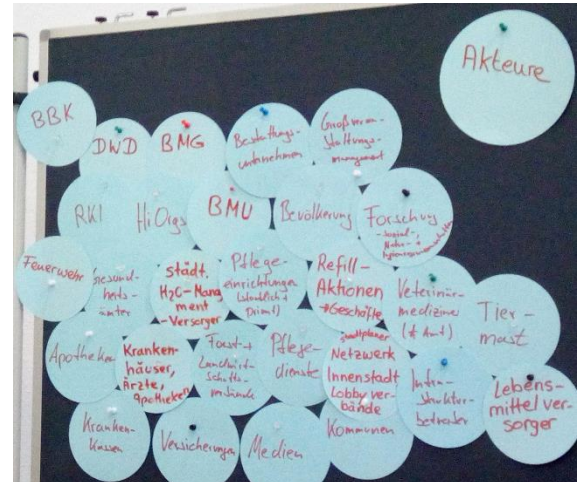 Akteure
BBK
DWD
BMG
Bestattungs-
unternehmen
Großveran-
staltungs-
management
RKI
HiOrgs
BMU
Bevölkerung
Forschung
- Sozial-,
Natur- +
Feuerwehr
Gesund-
heits-
ämter
städt.
H2O-Mana
ment
-Versorger
Pflege-
einrichtungen
Refill-
Aktionen
→Geschäfte
Veterinär-
mediziner
(+ Amt)
Tier-
mast
Apotheken
Kranken-
häuser,
Ärzte,
Apotheken
Forst- +
Landwirt-
schafts-
verbände
Pflege-
dienste
Stadtplaner
Netzwerk
Innenstadt
Lobbyver-
bände
Kommunen
Infra-
struktur-
betreiber
Lebens-
mittelver-
sorger
Kranken-
kassen
Versicherungen
Medien